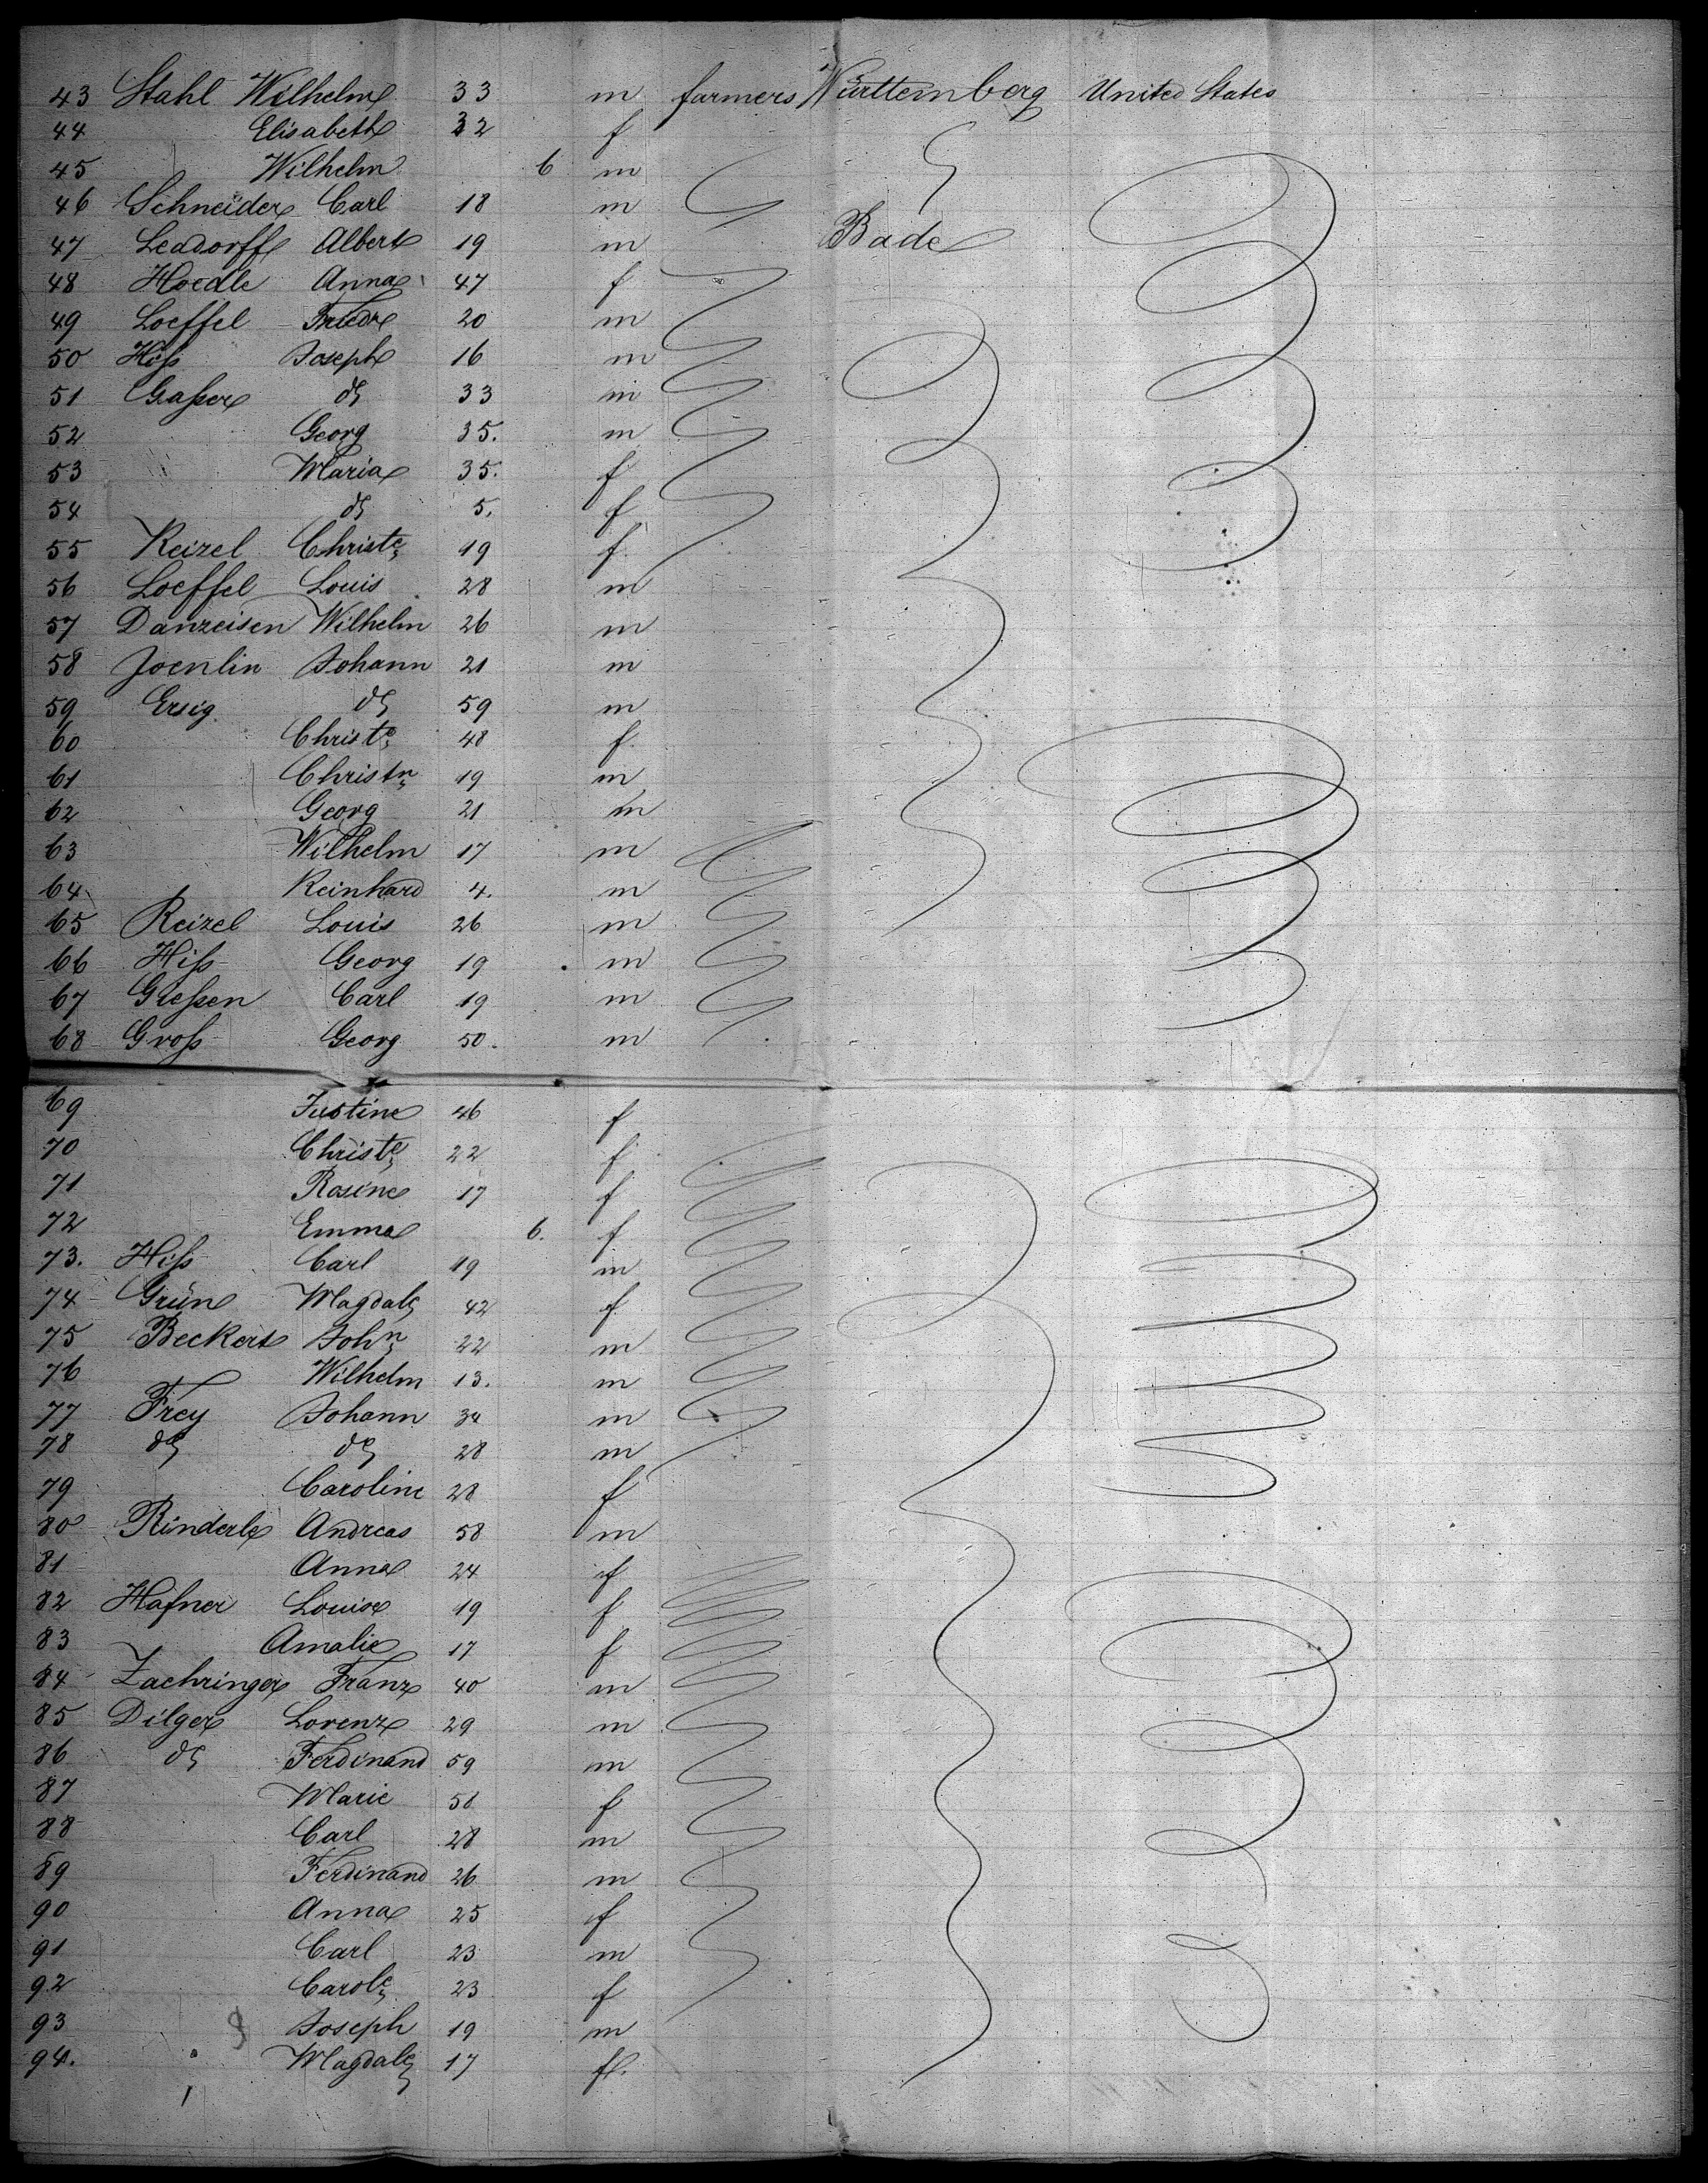 43 Stahl Wilhelm 33 m farmers Württemberg United States
44 Elisabeth 32 f
45 Wilhelm 6 m
46 Schneider Carl 18 m
47 Leadorff Albert 19 m Bade
48 Hoedle Anna 47 f
49 Loeffel Friedr 20 m
50 Hiß Joseph 16 m
51 Gaßer do 33 m
52 Georg 35. m
53 Maria 35. f
54 do 5. f
55 Reizel Christe 19 f
56 Loeffel Louis 28 m
57 Danzeisen Wilhelm 26 m
58 Joenlin Johann 21 m
59 Ersig do 59 m
60 Christe 48 f
61 Christn 19 m
62 Georg 21 m
63 Wilhelm 17 m
64 Reinhard 4. m
65 Reizel Louis 26 m
66 Hiß Georg 19 m
67 Gießen Carl 19 m
68 Groß Georg 50. m
69 Justine 46 f
70 Christe 22 f
71 Rosine 17 f
72 Emma 6. f
73. Hiß Carl 19 m
74 Grün Magdal 42 f
75 Beckert John 22 m
76 Wilhelm 13. m
77 Frey Johann 34 m
78 do do 28 m
79 Caroline 28 f
80 Rinderle Andreas 58 m
81 Anna 24 f
82 Hafner Louise 19 f
83 Amalie 17 f
84 Zaehringer Franz 40 m
85 Dilger Lorenz 29 m
86 do Ferdinand 59 m
87 Marie 58 f
88 Carl 28 m
89 Ferdinand 26 m
90 Anna 25 f
91 Carl 23 m
92 Carole 23 f
93 Joseph 19 m
94. Magdale 17 f.